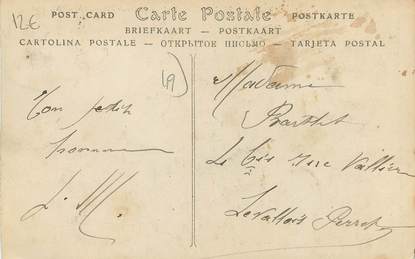 12€
POST CARD Carte Postale POSTKARTE
BRIEFKAART — POSTKAART
CARTOLINA POSTALE — ОТКРЫТОЕ ПИСЬМО — TARJETA POSTAL
49
Ton petit
homme
J. M.
Madame
Barthet
bis rue Vallier
Levallois Perret